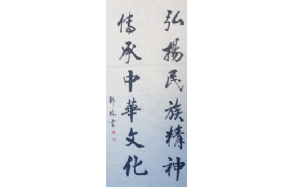 弘揚民族精神
傳承中華文化